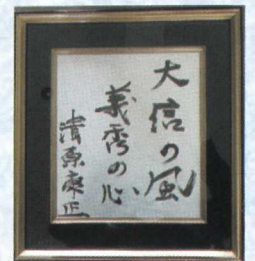 大信の風
義秀の心
清原康正